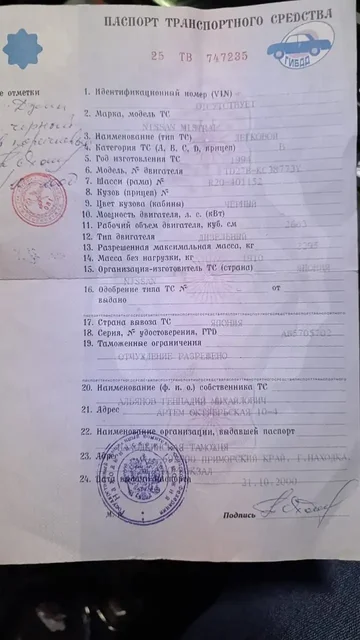 ПАСПОРТ ТРАНСПОРТНОГО СРЕДСТВА
25 ТВ 747235
ГИБДД
ые отметки
1. Идентификационный номер (VIN)
ОТСУТСТВУЕТ
2. Марка, модель ТС
NISSAN MISTRAL
3. Наименование (тип ТС) ЛЕГКОВОЙ
4. Категория ТС (А, В, С, D, прицеп) В
5. Год изготовления ТС 1994
6. Модель, № двигателя
7. Шасси (рама) № R20-401132
8. Кузов (прицеп) №
9. Цвет кузова (кабины)
10. Мощность двигателя, л. с. (кВт)
11. Рабочий объем двигателя, куб. см
12. Тип двигателя ДИЗЕЛЬНЫЙ
13. Разрешенная максимальная масса, кг
14. Масса без нагрузки, кг 1910
15. Организация-изготовитель ТС (страна) ЯПОНИЯ
NISSAN
16. Одобрение типа ТС № - от
выдано
17. Страна вывоза ТС ЯПОНИЯ
18. Серия, № удостоверения, PTD
19. Таможенные ограничения
ОТЧУЖДЕНИЕ РАЗРЕШЕНО
20. Наименование (ф. и. о.) собственника ТС
ГЕННАДИЙ МИХАЙЛОВИЧ
21. Адрес АРТЕМ ОКТЯБРЬСКАЯ 10-4
22. Наименование организации, выдавшей паспорт
ТАМОЖНЯ
23. Адрес ПРИМОРСКИЙ КРАЙ, Г.НАХОДКА,
24. Дата выдачи паспорта 21.10.2000
Подпись